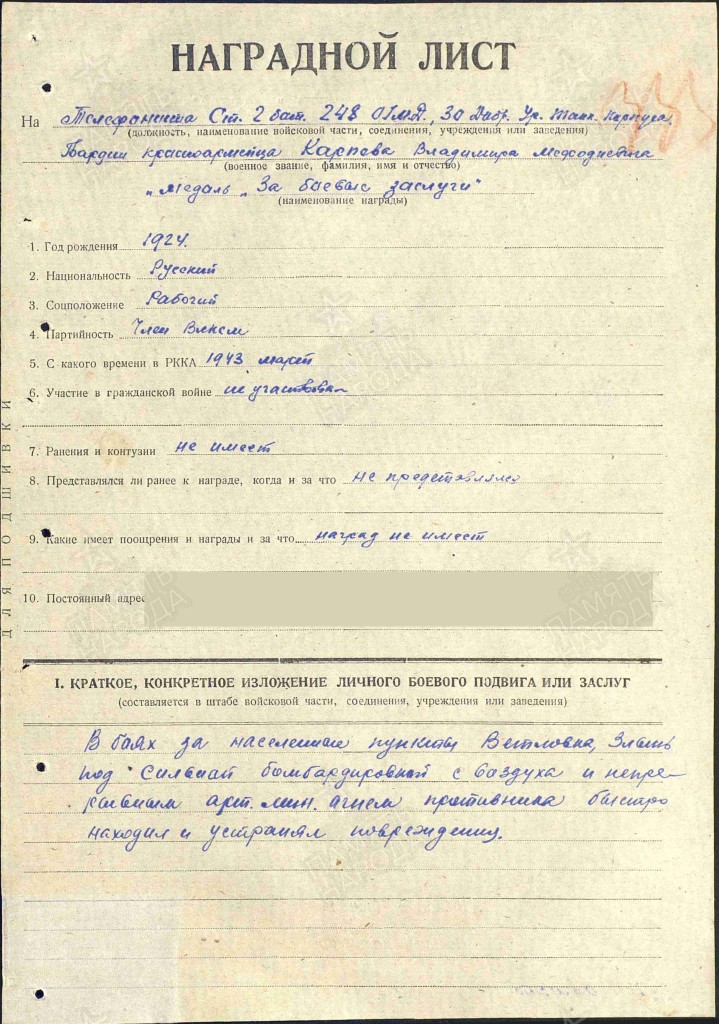 НАГРАДНОЙ ЛИСТ
На Телефониста Ст. 2 бат. 248 ОГМД, 30 Добр. Ур. Танк. Корпуса
(должность, наименование войсковой части, соединения, учреждения или заведения)
Гвардии красноармейца Карпова Владимира Мефодиевича
(военное звание, фамилия, имя и отчество)
"Медаль „За боевые заслуги"
(наименование награды)
1. Год рождения 1924.
2. Национальность Русский
3. Соцположение Рабочий
4. Партийность Член Влксм
5. С какого времени в РККА 1943 март
6. Участие в гражданской войне не участвовал
7. Ранения и контузии не имеет
8. Представлялся ли ранее к награде, когда и за что не предстовлялся
9. Какие имеет поощрения и награды и за что наград не имеет
10. Постоянный адрес
ДЛЯ ПОДШИВКИ
I. КРАТКОЕ, КОНКРЕТНОЕ ИЗЛОЖЕНИЕ ЛИЧНОГО БОЕВОГО ПОДВИГА ИЛИ ЗАСЛУГ
(составляется в штабе войсковой части, соединения, учреждения или заведения)
В боях за населенные пункты Ветловка, Злынь
под сильной бомбардировкой с воздуха и непре-
рывным арт. мин. огнем противника быстро
находил и устранял повреждения.
ПАМЯТЬ НАРОДА